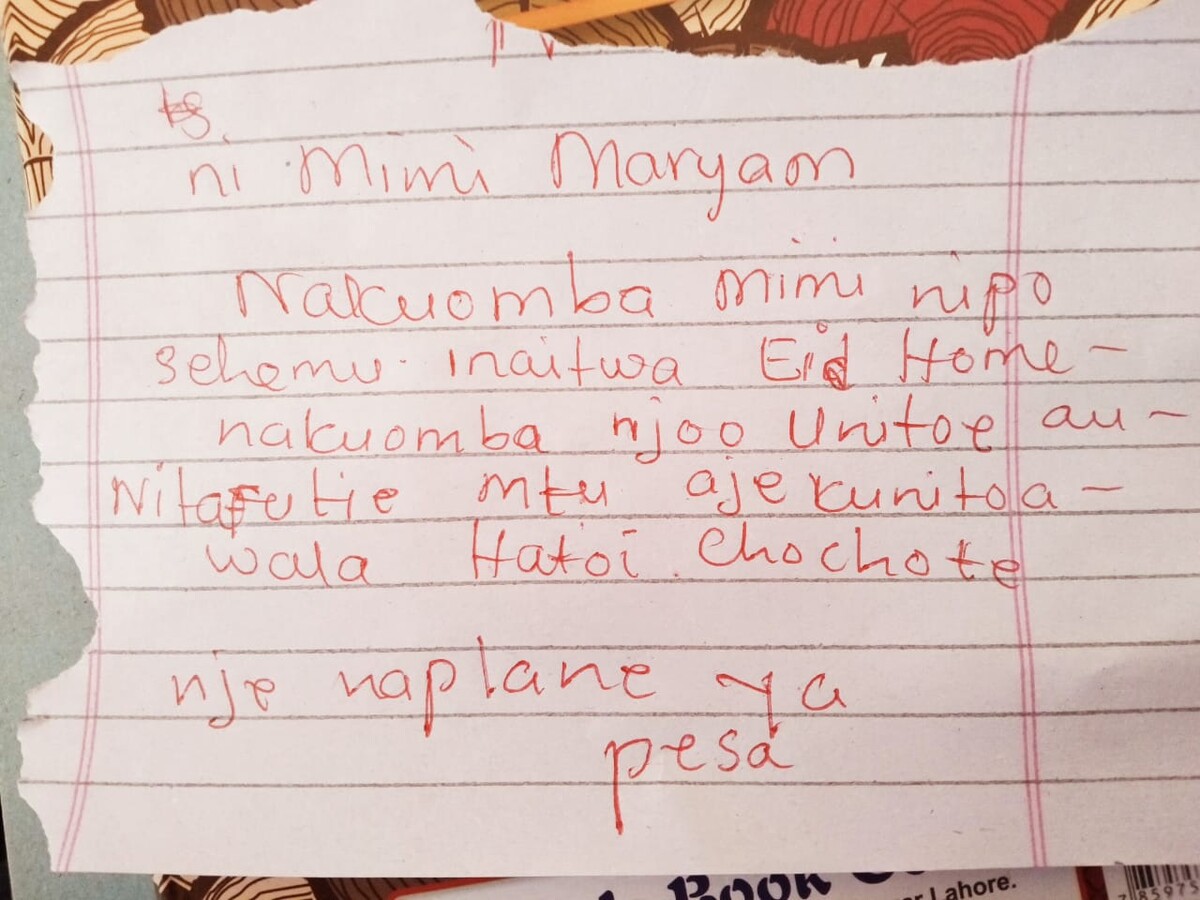 ni Mimi Maryam
Nakuomba mimi nipo
sehemu inaitwa Eid Home-
nakuomba njoo Unitoe au-
Nitafutie mtu aje kunitoa-
wala Hatoi chochote
nje naplane ya
pesa
Book
Lahore.